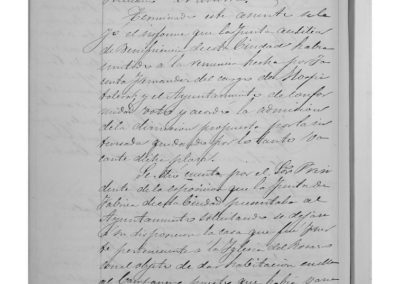 Terminado este asunto se le
yó el informe que la Junta auxiliar
de Beneficencia de esta Ciudad había
emitido a la renuncia hecha por
Fernandez del cargo de Hospi
talero, y el Ayuntamiento de confor
midad votó y acordó la admision
de la dimision propuesta por la in
teresada quedando por lo tanto va
cante dicha plaza.
Se dió cuenta por el Sor. Presi
dente de la esposicion que la Junta de
Fabrica de esta Ciudad presentaba al
Ayuntamiento solicitando se dejase
a su disposicion la casa que
perteneciente a la Iglesia del Rosario
con el objeto de dar habitacion en ella
al Campanero puesto que habia